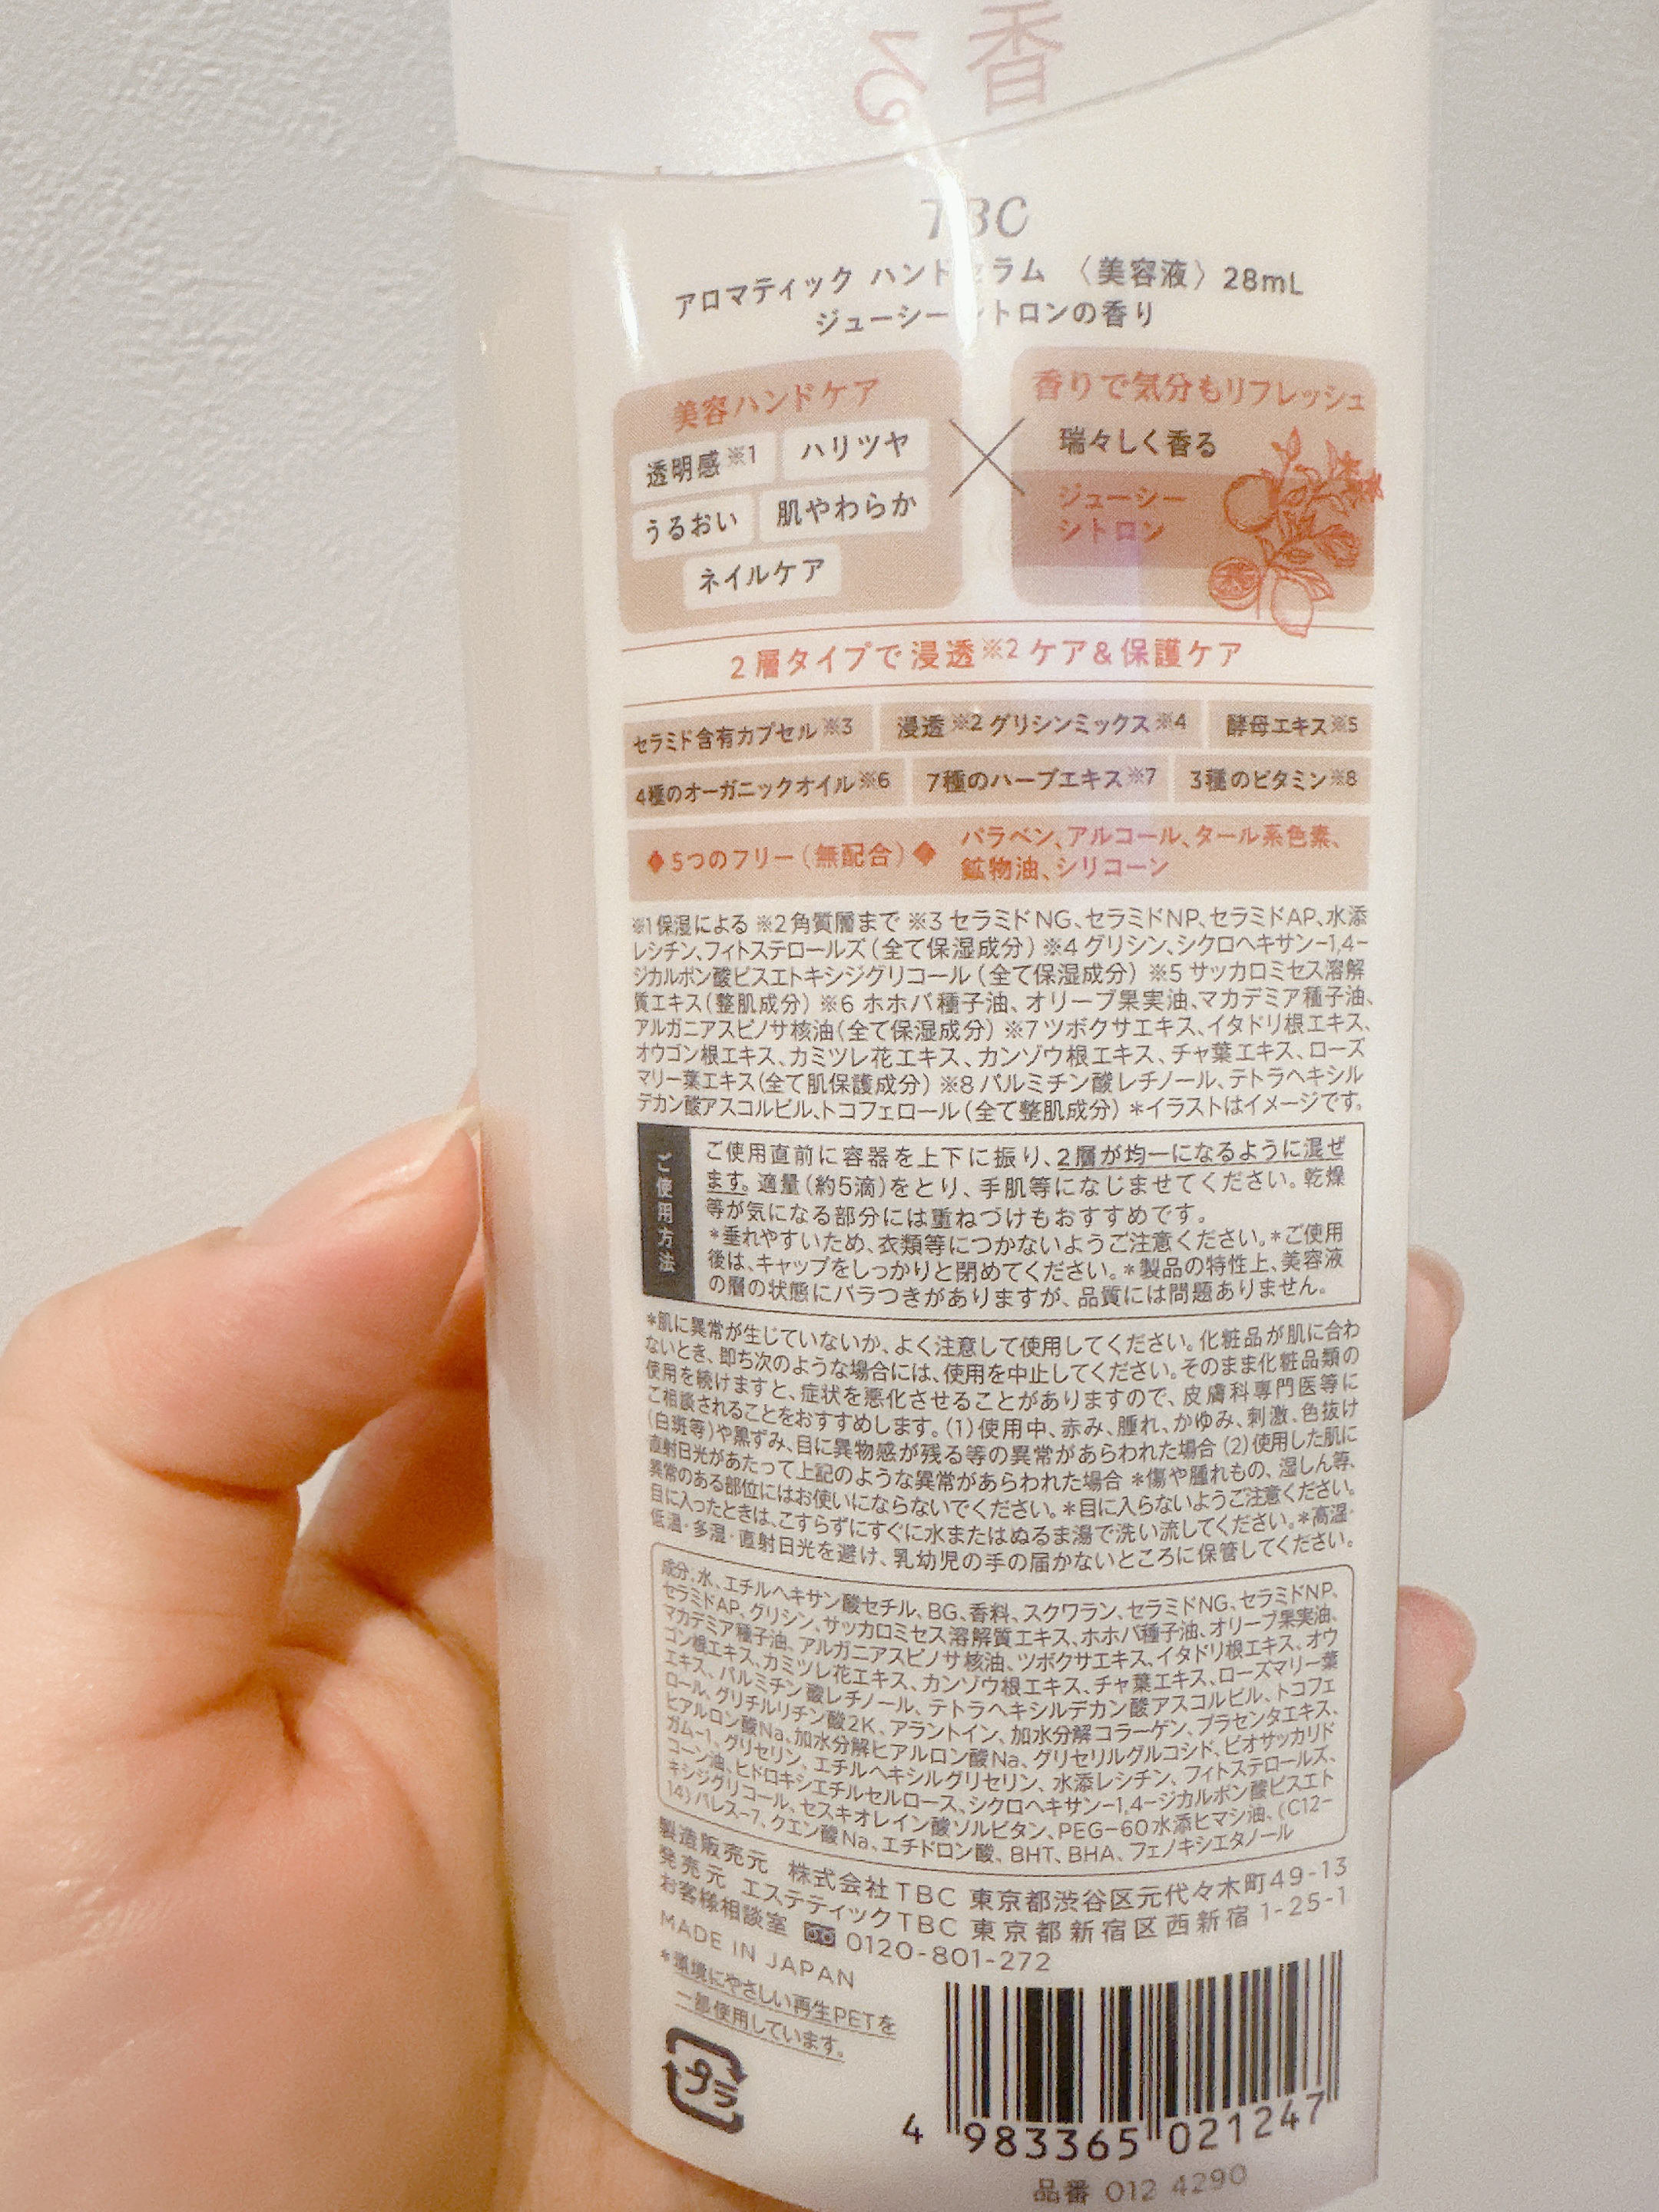 香
る
TBC
アロマティック ハンドセラム 〈美容液〉 28mL
ジューシーシトロンの香り
美容ハンドケア
透明感※1 ハリツヤ
うるおい 肌やわらか
ネイルケア
×
香りで気分もリフレッシュ
瑞々しく香る
ジューシー
シトロン
2層タイプで浸透※2ケア&保護ケア
セラミド含有カプセル※3 浸透※2グリシンミックス※4 酵母エキス※5
4種のオーガニックオイル※6 7種のハーブエキス※7 3種のビタミン※8
◆5つのフリー(無配合)◆ パラベン、アルコール、タール系色素、
鉱物油、シリコーン
※1保湿による ※2角質層まで ※3セラミドNG、セラミドNP、セラミドAP、水添
レシチン、フィトステロールズ(全て保湿成分) ※4グリシン、シクロヘキサン-1,4-
ジカルボン酸ビスエトキシジグリコール(全て保湿成分) ※5サッカロミセス溶解
質エキス(整肌成分) ※6ホホバ種子油、オリーブ果実油、マカデミア種子油、
アルガニアスピノサ核油(全て保湿成分) ※7ツボクサエキス、イタドリ根エキス、
オウゴン根エキス、カミツレ花エキス、カンゾウ根エキス、チャ葉エキス、ローズ
マリー葉エキス(全て肌保護成分) ※8パルミチン酸レチノール、テトラヘキシル
デカン酸アスコルビル、トコフェロール(全て整肌成分) *イラストはイメージです。
ご使用方法
ご使用直前に容器を上下に振り、2層が均一になるように混ぜ
ます。適量(約5滴)をとり、手肌等になじませてください。乾燥
等が気になる部分には重ねづけもおすすめです。
*垂れやすいため、衣類等につかないようご注意ください。*ご使用
後は、キャップをしっかりと閉めてください。*製品の特性上、美容液
の層の状態にバラつきがありますが、品質には問題ありません。
*肌に異常が生じていないか、よく注意して使用してください。化粧品が肌に合わ
ないとき、即ち次のような場合には、使用を中止してください。そのまま化粧品類の
使用を続けますと、症状を悪化させることがありますので、皮膚科専門医等に
ご相談されることをおすすめします。(1)使用中、赤み、腫れ、かゆみ、刺激、色抜け
(白斑等)や黒ずみ、目に異物感が残る等の異常があらわれた場合(2)使用した肌に
直射日光があたって上記のような異常があらわれた場合 *傷や腫れもの、湿しん等、
異常のある部位にはお使いにならないでください。*目に入らないようご注意ください。
目に入ったときは、こすらずにすぐに水またはぬるま湯で洗い流してください。*高温・
低温・多湿・直射日光を避け、乳幼児の手の届かないところに保管してください。
成分:水、エチルヘキサン酸セチル、BG、香料、スクワラン、セラミドNG、セラミドNP、
セラミドAP、グリシン、サッカロミセス溶解質エキス、ホホバ種子油、オリーブ果実油、
マカデミア種子油、アルガニアスピノサ核油、ツボクサエキス、イタドリ根エキス、オウ
ゴン根エキス、カミツレ花エキス、カンゾウ根エキス、チャ葉エキス、ローズマリー葉
エキス、パルミチン酸レチノール、テトラヘキシルデカン酸アスコルビル、トコフェ
ロール、グリチルリチン酸2K、アラントイン、加水分解コラーゲン、プラセンタエキス、
ヒアルロン酸Na、加水分解ヒアルロン酸Na、グリセリルグルコシド、ビオサッカリド
ガム-1、グリセリン、エチルヘキシルグリセリン、水添レシチン、フィトステロールズ、
コーン油、ヒドロキシエチルセルロース、シクロヘキサン-1,4-ジカルボン酸ビスエト
キシジグリコール、セスキオレイン酸ソルビタン、PEG-60水添ヒマシ油、(C12-
14)パレス-7、クエン酸Na、エチドロン酸、BHT、BHA、フェノキシエタノール
製造販売元 株式会社TBC 東京都渋谷区元代々木町49-13
発売元 エステティックTBC 東京都新宿区西新宿1-25-1
お客様相談室 0120-801-272
MADE IN JAPAN
*環境にやさしい再生PETを
一部使用しています。
プラ
4 983365 021247
品番 012 4290